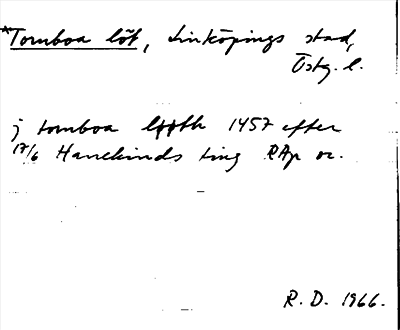 *Tomboa löt, Linköpings stad,
Östg. l.
j tomboa lööth 1457 efter
17/6 Hanekinds ting RAp or.
R. D. 1966.